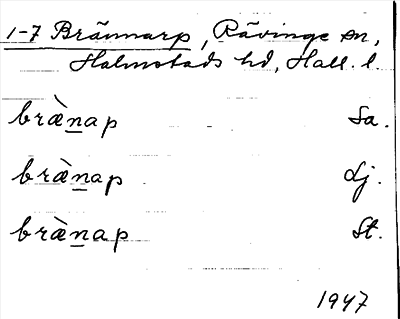 1-7 Brännarp, Rävinge sn,
Halmstads hd, Hall. l.
bræ̀n̲ap Sa.
bræ̀n̲ap Lj.
bræ̀n̲ap St.
1947